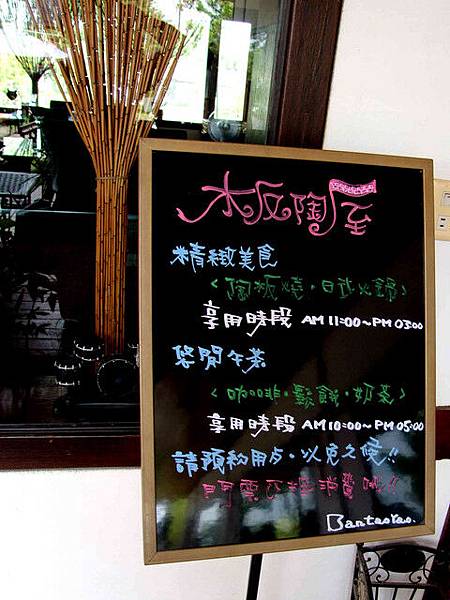 木板陶
精緻美食
<陶板燒·日近火鍋>
享用時段 AM 11:00~PM 03:00
悠閒午茶
<咖啡·鬆餅·奶茶>
享用時段 AM 10:00~PM 05:00
請預約用点·以免久候!!
門票 消費 !!
Bantaoyao.